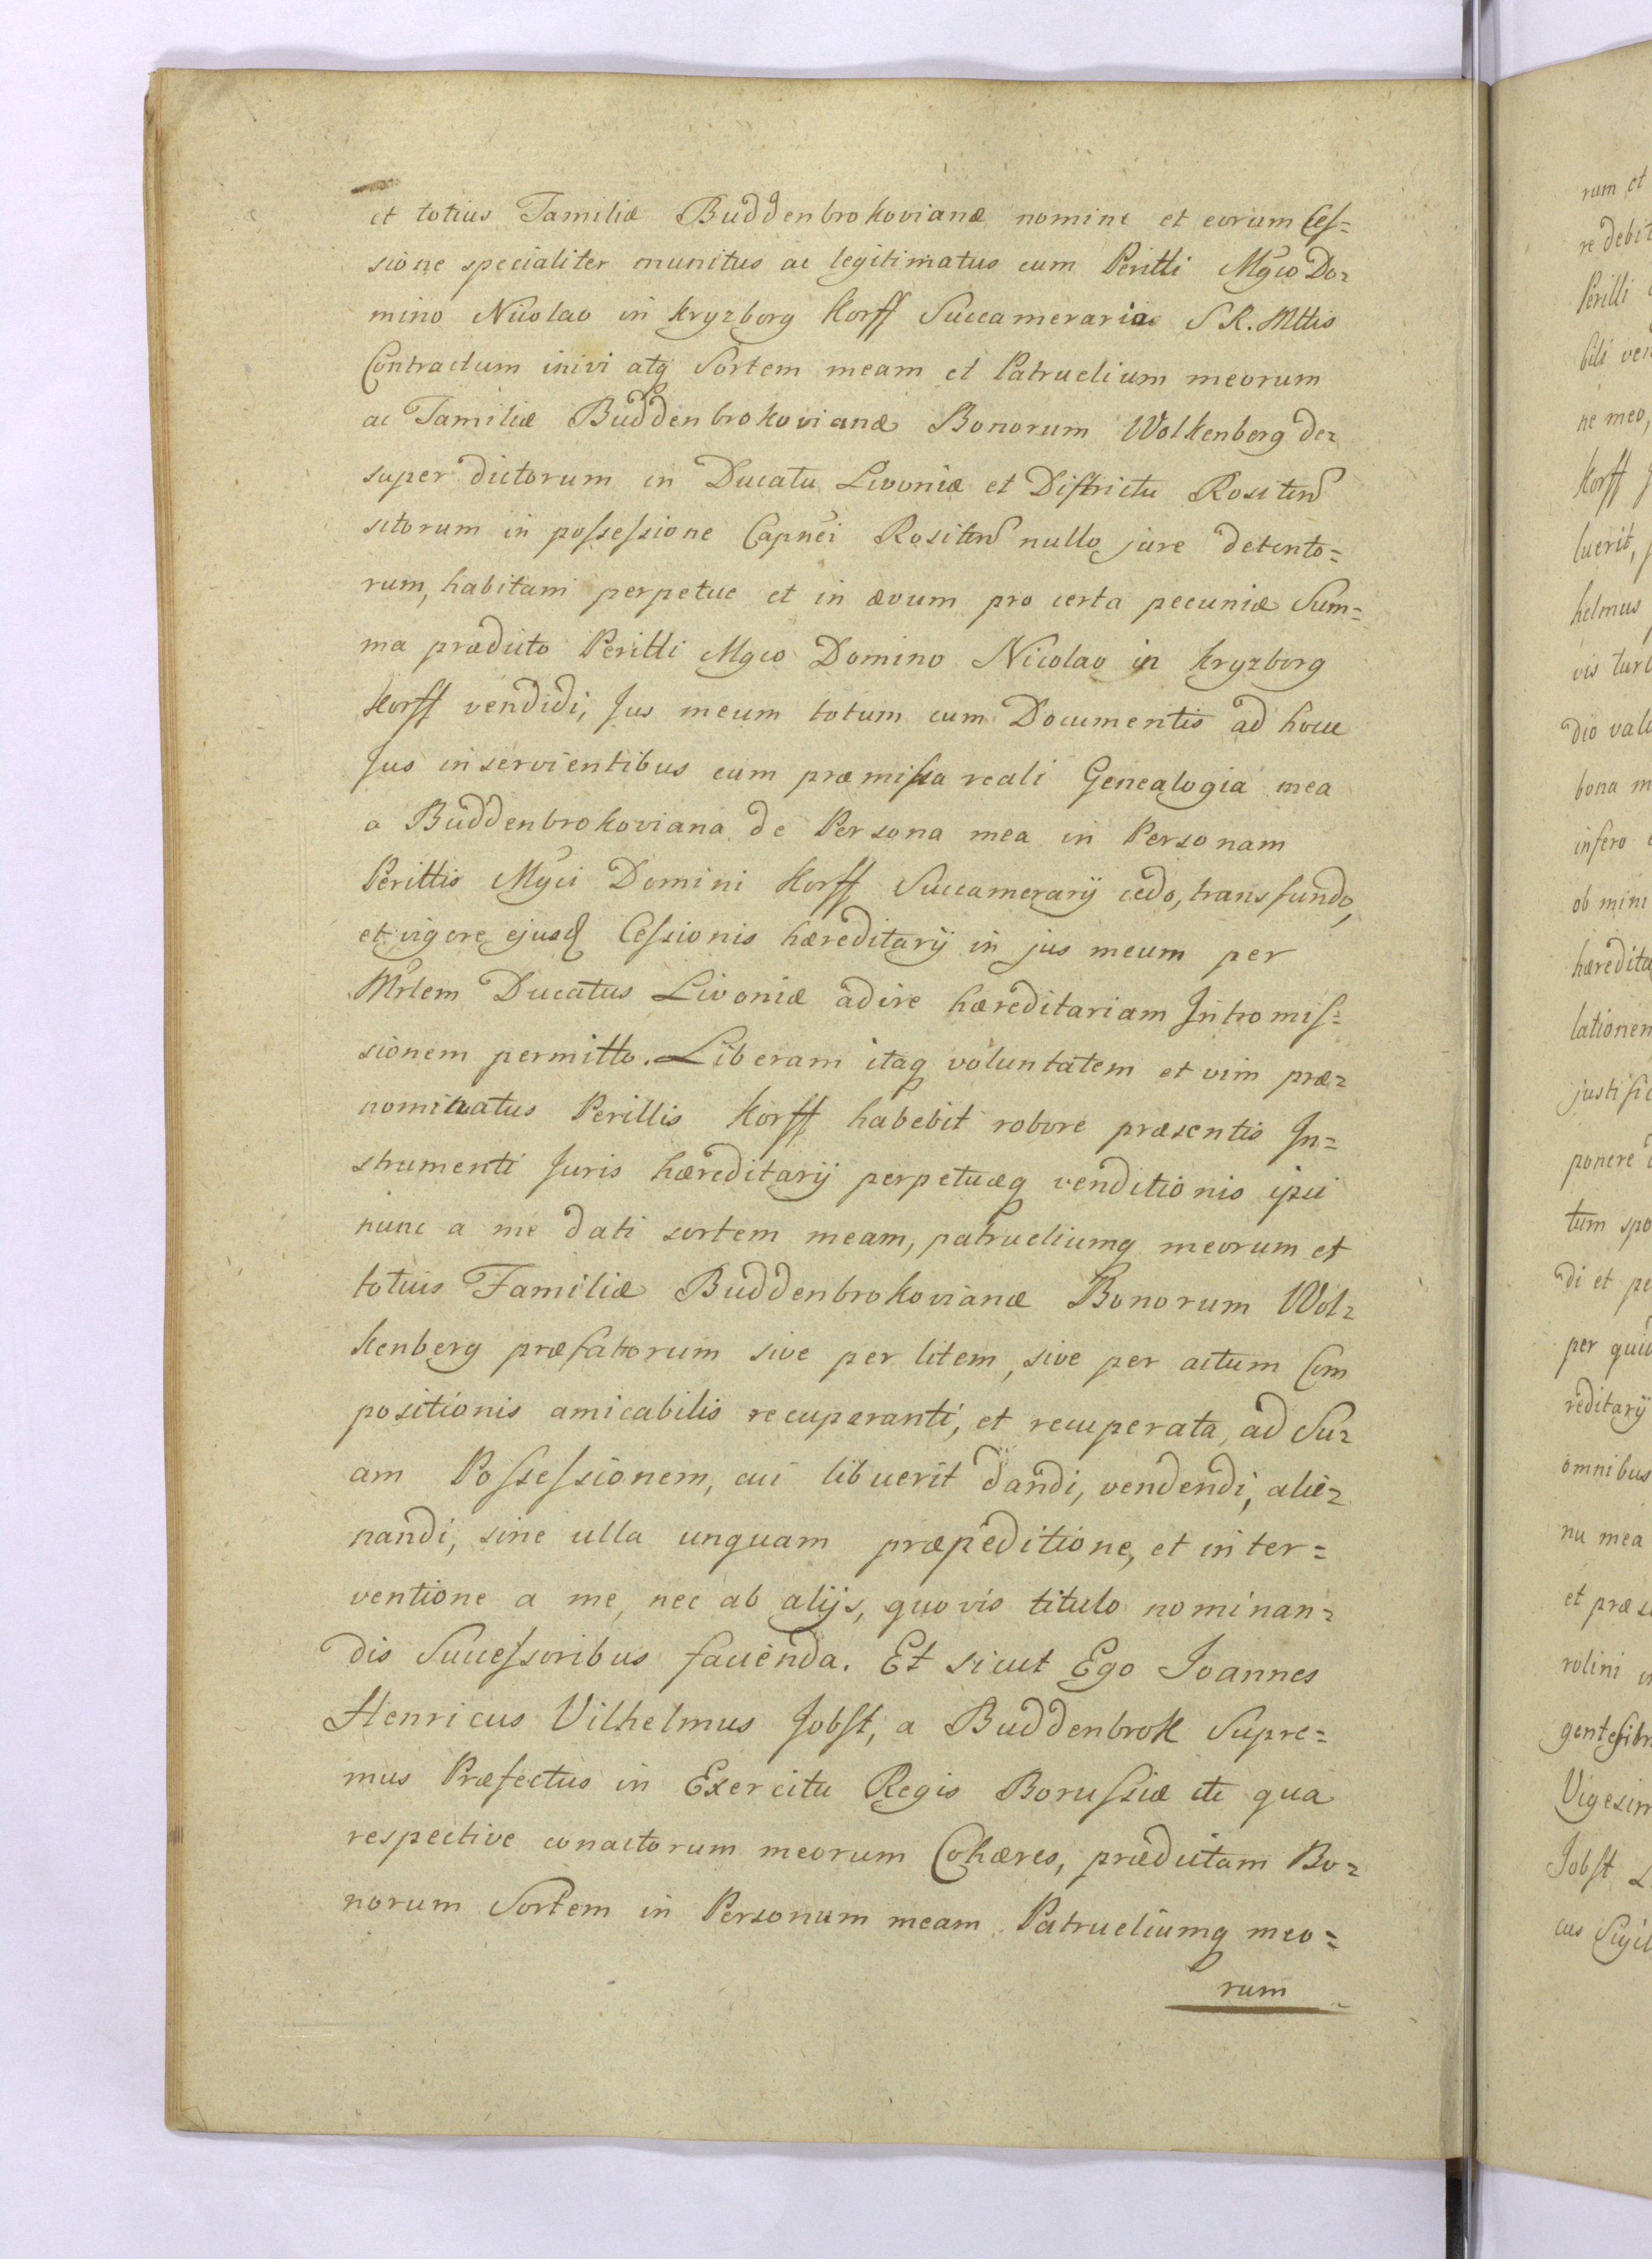 et totius Familiæ Buddenbrokovianæ nomine et eorum Ces=
sione specialiter munitus ac legitimatus cum Perilli Mgco Do=
mino Nicolao in Kryzborg Korff Succamerario S R. Mttis
Contractum inivi atq Sortem meam et Patruelium meorum
ac Familiæ Buddenbrokovianæ Bonorum Wolkenberg de=
super dictorum in Ducatu Livoniæ et Districtu Rositen
sitorum in possessione Capnei Rositen nullo jure detento=
rum, habitam perpetue et in ævum pro certa pecuniæ Sum=
ma prædicto Perilli Mgco Domino Nicolao in Kryzborg
Korff vendidi, Jus meum totum cum Documentis ad hocce
Jus inservientibus cum præmissa reali Genealogia mea
a Buddenbrokoviana de Persona mea in Personam
Perillis Mgci Domini Korff Succamerarij cedo, transfundo,
et vigore ejusd Cessionis hæreditarij in jus meum per
Mrlem Ducatus Livoniæ adire hæreditariam Intromis=
sionem permitto. Liberam itaq voluntatem et vim præ=
nominatus Perillis Korff habebit robore præsentis In=
strumenti Juris hæreditarij perpetuæq venditionis ipsi
nunc a me dati sortem meam, patrueliumq meorum et
totius Familiæ Buddenbrokovianæ Bonorum Wol=
kenberg præfatorum sive per litem, sive per actum Com
positionis amicabilis recuperanti, et recuperata, ad Su=
am Possessionem, cui libuerit dandi, vendendi, alie=
nandi, sine ulla unquam præpeditione, et inter=
ventione a me, nec ab alijs, quovis titulo nominan=
dis Successoribus facienda. Et sicut Ego Joannes
Henricus Vilhelmus Jobst, a Buddenbrok Supre=
mus Præfectus in Exercitu Regis Borussiæ etc qua
respective conactorum meorum Cohæres, prædictam Bo=
norum Sortem in Personum meam Patrueliumq meo=
rum
rum et
re debit
Perilli
bili ven
ne meo,
Korff
luerit,
helmus
vis turb
dio val
bona m
infero
ob mini
hæredita
lationem
justific
ponere
tum spo
di et pe
per qui
reditarij
omnibus
nu mea
et præs
rolini
gentesim
Vigesim
Jobst
cus Sigil